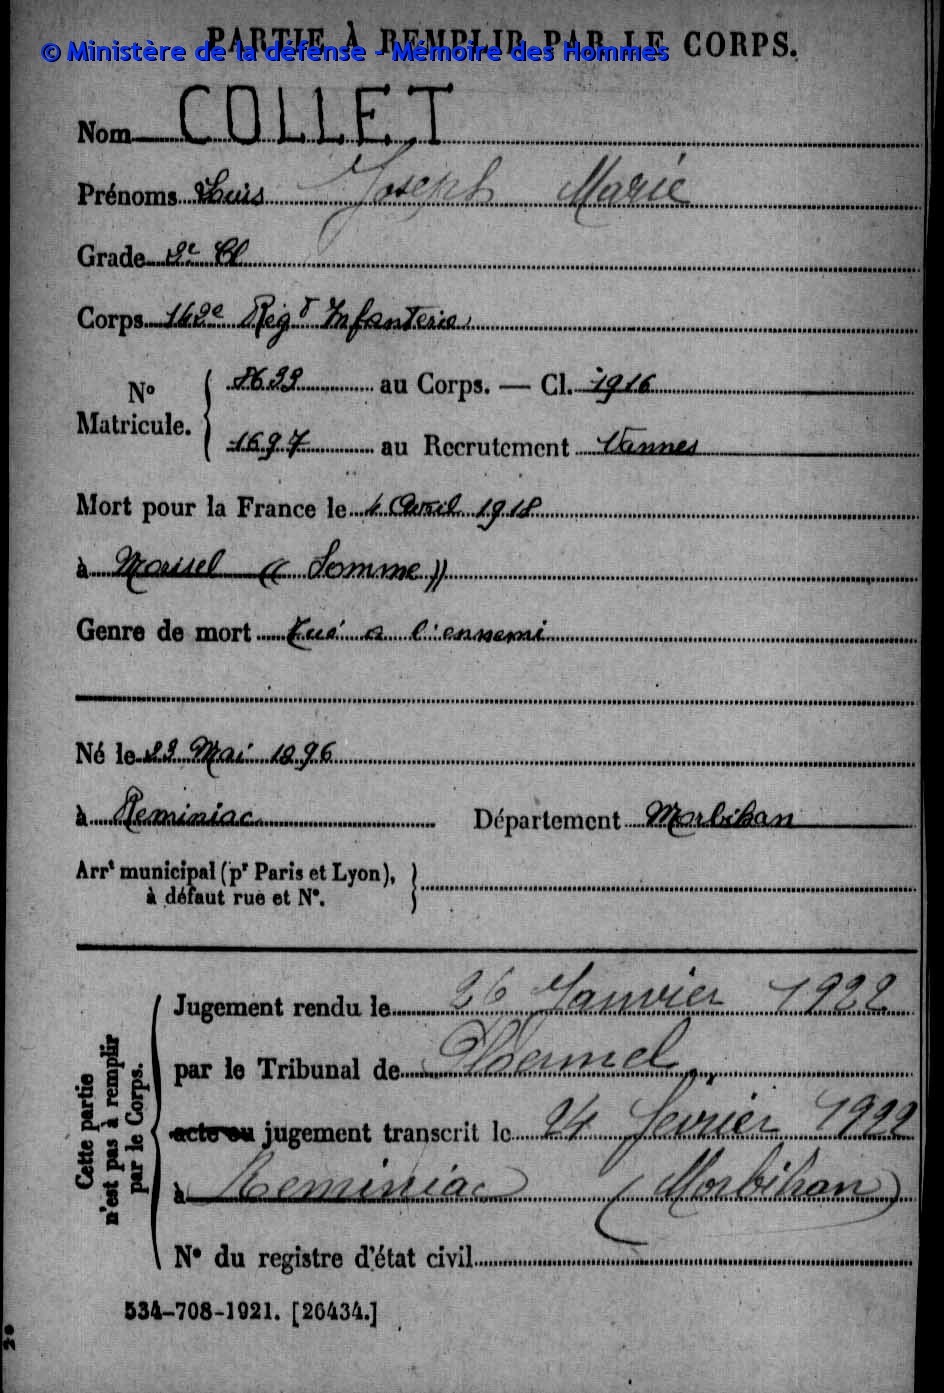 PARTIE À REMPLIR PAR LE CORPS.
© Ministère de la défense - Mémoire des Hommes
Nom COLLET
Prénoms Louis Joseph Marie
Grade 2e Cl
Corps 142e Régt Infanterie
N° Matricule. { 8633 au Corps. — Cl. 1916
1697 au Recrutement Vannes
Mort pour la France le 4 Avril 1918
à Morisel (( Somme ))
Genre de mort Tué a l'ennemi
Né le 23 Mai 1896
à Reminiac Département Morbihan
Arrt municipal (pr Paris et Lyon),
à défaut rue et N°.
Cette partie
n'est pas à remplir
par le Corps.
Jugement rendu le 26 Janvier 1922
par le Tribunal de Ploermel
acte ou jugement transcrit le 24 fevrier 1922
à Reminiac (Morbihan)
N° du registre d'état civil
534-708-1921. [26434.]